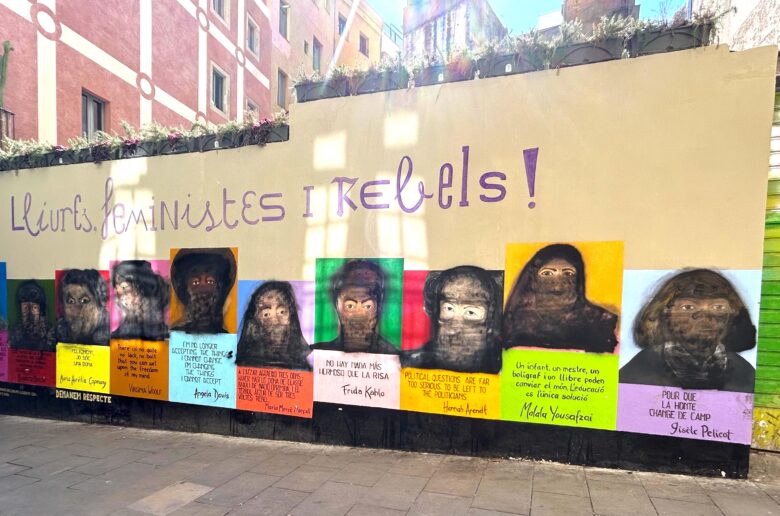 Lliures, feministes i rebels!
Anna Aurèlia Capmany
DEMANEM RESPECTE
There is no gate,
no lock, no bolt
that you can set
upon the freedom
of my mind
Virginia Woolf
I'M NO LONGER
ACCEPTING THE THINGS
I CANNOT CHANGE
I'M CHANGING
THE THINGS
I CANNOT ACCEPT
Angela Davis
TRES VOLTES REBEL
Maria Mercè Marçal
NO HAY NADA MÁS
HERMOSO QUE LA RISA
Frida Kahlo
POLITICAL QUESTIONS ARE FAR
TOO SERIOUS TO BE LEFT TO
THE POLITICIANS
Hannah Arendt
Un infant, un mestre, un
bolígraf i un llibre poden
canviar el món. L'educació
és l'única solució
Malala Yousafzai
POUR QUE LA
HONTE
CHANGE DE CAMP
Gisèle Pelicot